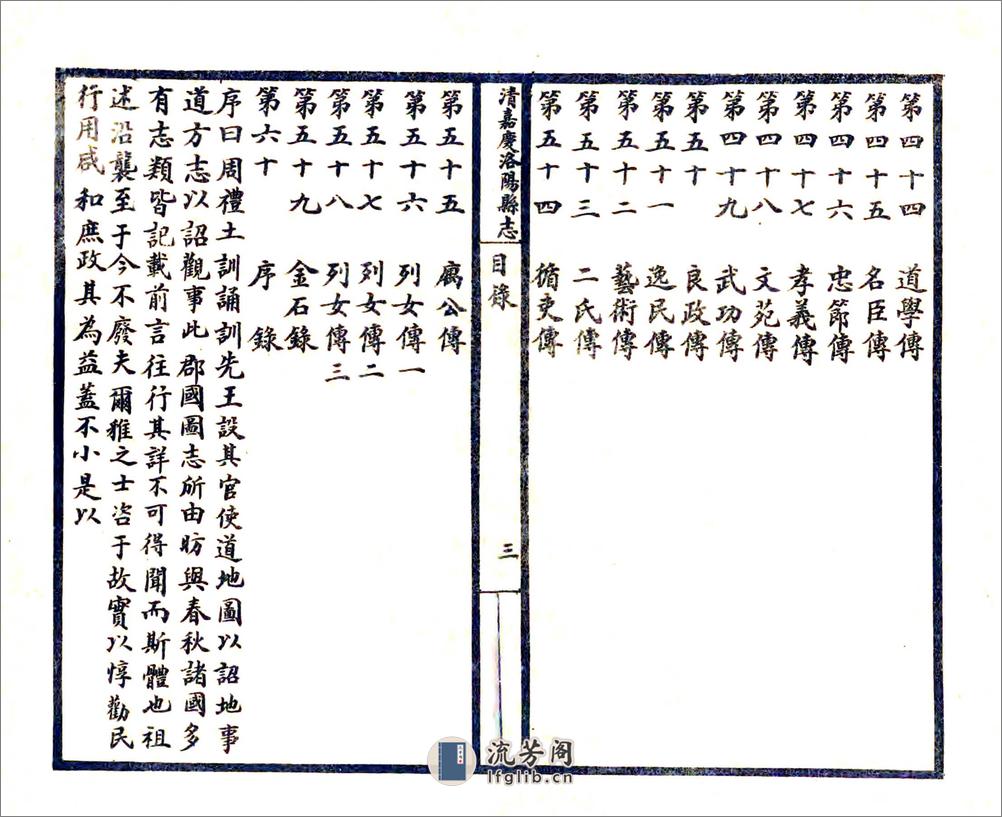 第四十四　道學傳
第四十五　名臣傳
第四十六　忠節傳
第四十七　孝義傳
第四十八　文苑傳
第四十九　武功傳
第五十　良政傳
第五十一　逸民傳
第五十二　藝術傳
第五十三　二氏傳
第五十四　循吏傳
清嘉慶洛陽縣志　目錄　三
第五十五　寓公傳
第五十六　列女傳一
第五十七　列女傳二
第五十八　列女傳三
第五十九　金石錄
第六十　序錄
序曰周禮土訓誦訓先王設其官使道地圖以詔地事
道方志以詔觀事此郡國圖志所由昉與春秋諸國多
有志類皆記載前言往行其詳不可得聞而斯體也祖
述沿襲至于今不廢夫爾雅之士咨于故實以惇勸民
行用咸和庶政其為益蓋不小是以
流芳阁
lfglib.cn